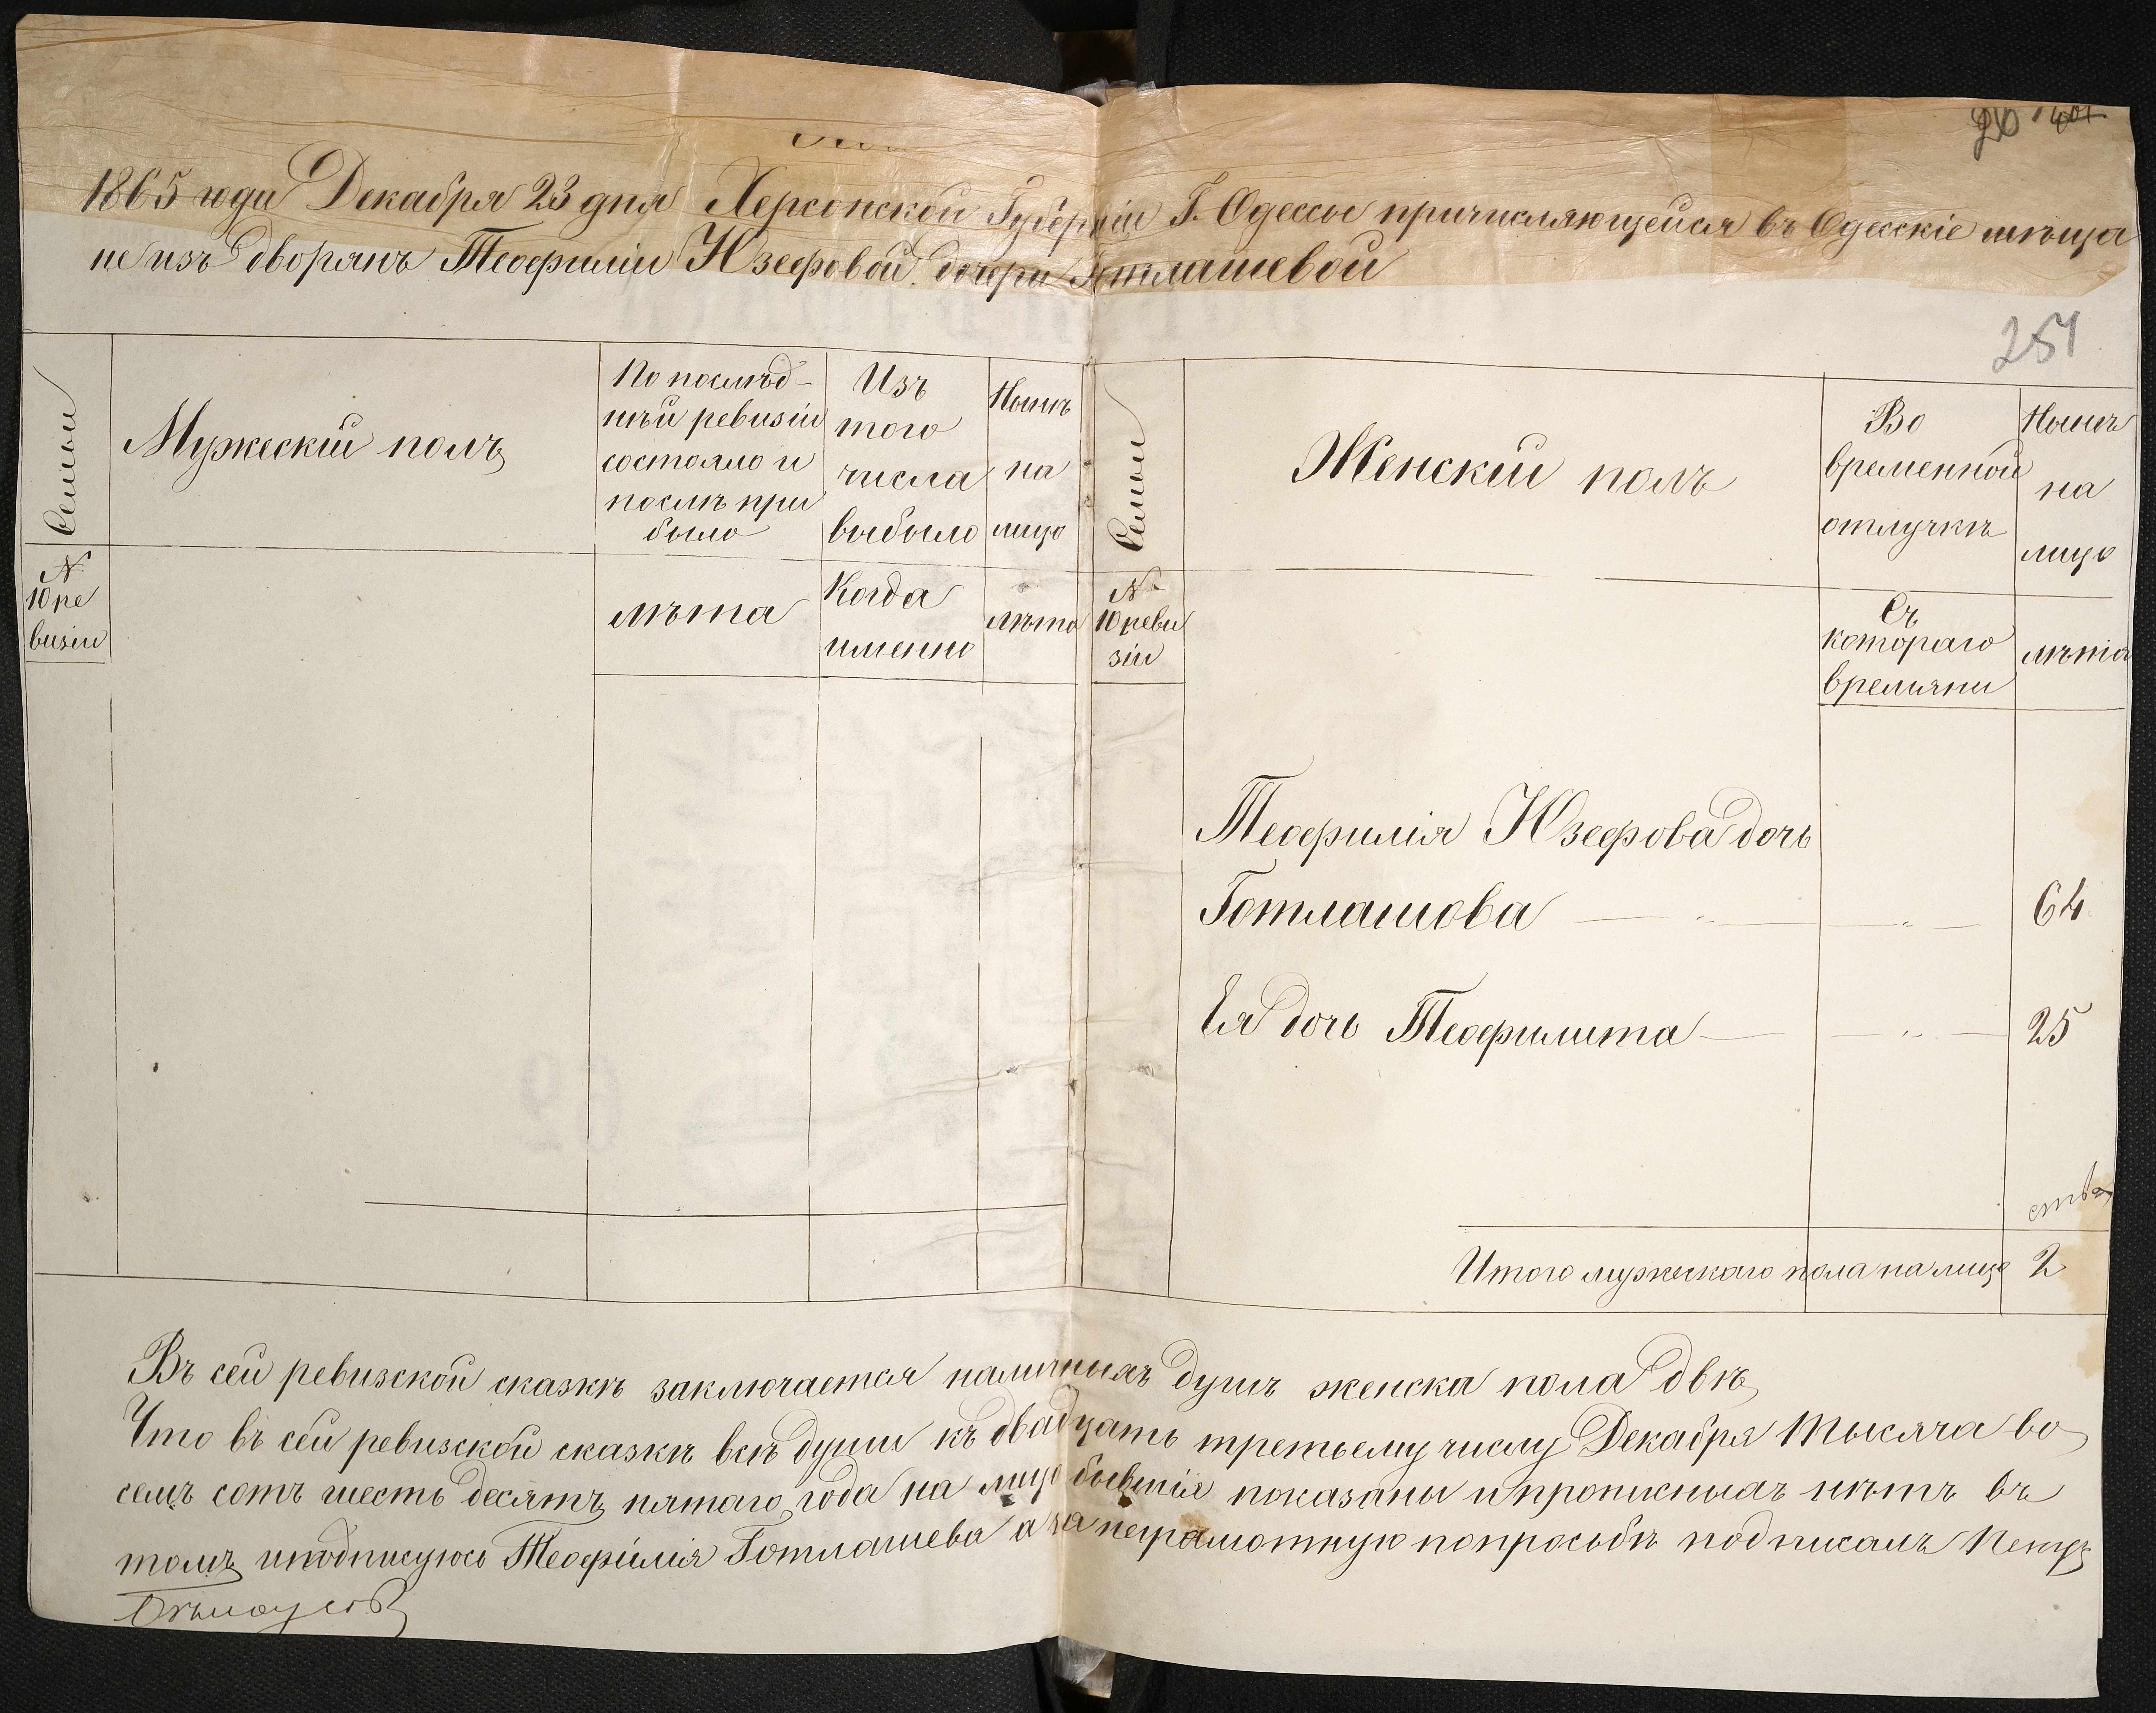 1865 года Декабря 23 дня Херсонской Губерніи Г. Одессы причисляющейся въ Одесскіе мѣща
не изъ дворянъ Теофиліи Юзефовой дочери Готлашевой
251
Семьи
Мужескій полъ
По послѣд-
нѣй ревизіи
состояло и
послѣ при
было
Изъ
того
числа
выбыло
Нынѣ
на
лицо
№
10 ре
визіи
лѣта
Когда
именно
лѣта
Семьи
Женскій полъ
Во
временной
отлучкѣ
Нынѣ
на
лицо
№
10 реви
зіи
Съ
котораго
времяни
лѣта
Теофилія Юзефова дочь
Готлашова 64
Ея дочь Теофилита 25
Итого мужескаго пола на лицо 2
Въ сей ревизской сказкѣ заключается наличныхъ душъ женска пола двѣ
Что въ сей ревизской сказкѣ всѣ души къ двадцать третьему числу Декабря Тысяча во
семь сотъ шесть десятъ пятаго года на лицо бывшіе показаны и прописныхъ нѣтъ въ
томъ и подписуюсь Теофілія Готлашева а за неграмотную по просьбѣ подписалъ